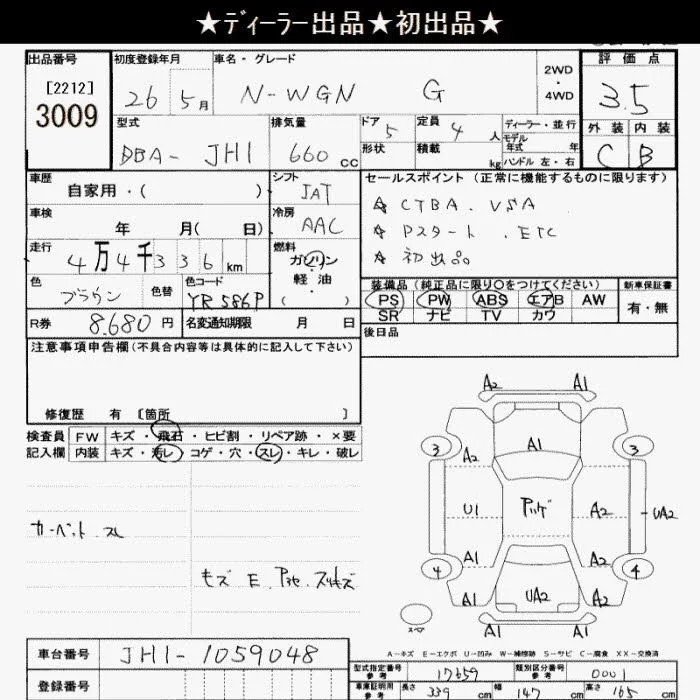 ★ディーラー出品★初出品★
出品番号
[2212]
3009
初度登録年月
26 5月
車名・グレード
N-WGN G
2WD
・
4WD
評価点
3.5
外装 内装
C B
型式
DBA- JH1
排気量
660 cc
ドア 5
形状
定員 4 人
積載 kg
ディーラー・並行
モデル
年式 年
ハンドル 左・右
車歴
自家用・( )
シフト
IAT
車検
年 月( 日)
冷房
AAC
走行
4万4千336km
燃料
ガソリン
軽・油
・( )
色
ブラウン
色替
色コード
YR586P
R券 8.680円
名変通知期限 月 日
セールスポイント(正常に機能するものに限ります)
☆ CTBA . VSA
☆ Pスタート . ETC
☆ 初出品
装備品(純正品に限り〇をつけてください)
PS PW ABS エアB AW
SR ナビ TV カワ
新車保証書
有・無
後日品
注意事項申告欄(不具合内容等は具体的に記入して下さい)
修復歴 有 [箇所 ]
検査員
記入欄
FW キズ・飛石・ヒビ割・リペア跡・×要
内装 キズ・汚レ・コゲ・穴・スレ・キレ・破レ
カーペット スレ
キズ E . スリキズ
A2 A1
3 A2 A1 3
U1 A2 A2 UA2
A1 A1
4 UA2 4
A1 A2
A1 A1
スペア
A-キズ E-エクボ U-凹み W-補修跡 S-サビ C-腐食 XX-交換済
車台番号 JH1-1059048
登録番号
型式指定番号
参考
17659
類別区分番号
参考
0001
車庫証明用
参考
長さ 339 cm
幅 147 cm
高さ 165 cm